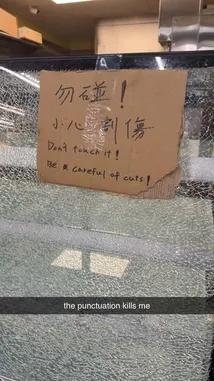 勿碰！
小心割傷
Don't touch it!
Be a careful of cuts!
the punctuation kills me